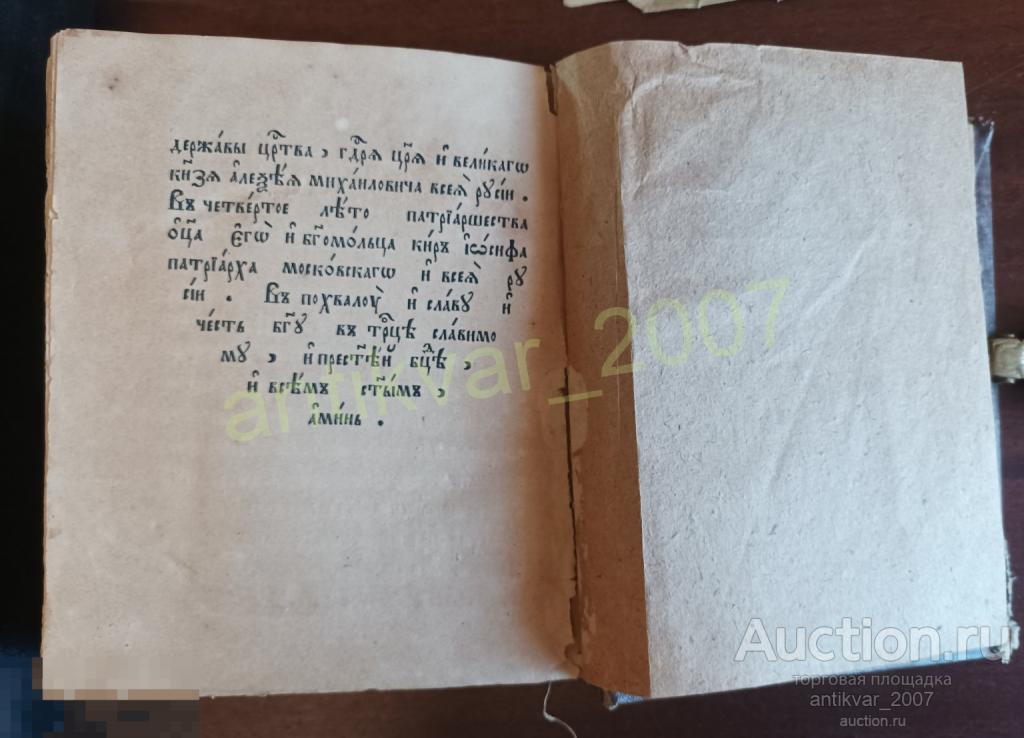 держа́вы црⷭ҇тва, гдⷭ҇рѧ црѧ҃ и҆ вели́кагѡ
кнѧ҃зѧ а҆леѯѣ́ѧ миха́иловича всеѧ̀ рꙋсі́и.
Въ четве́ртое лѣ́то патрїа́ршества
ѻ҆ц҃а є҆гѡ̀ и҆ бг҃омо́льца ки́ръ і҆ѡ́сифа
патрїа́рха моско́вскагѡ и҆ всеѧ̀ рꙋ
сі́и. Въ похвалоу̀ и҆ сла́вꙋ и҆
че́сть бг҃ꙋ въ трⷪ҇цѣ сла́вимо
мꙋ, и҆ прест҃ѣ́й бцⷣѣ,
и҆ всѣ́мъ ст҃ы́мъ,
а҆ми́нь.
antikvar_2007
Auction.ru
торговая площадка
antikvar_2007
auction.ru